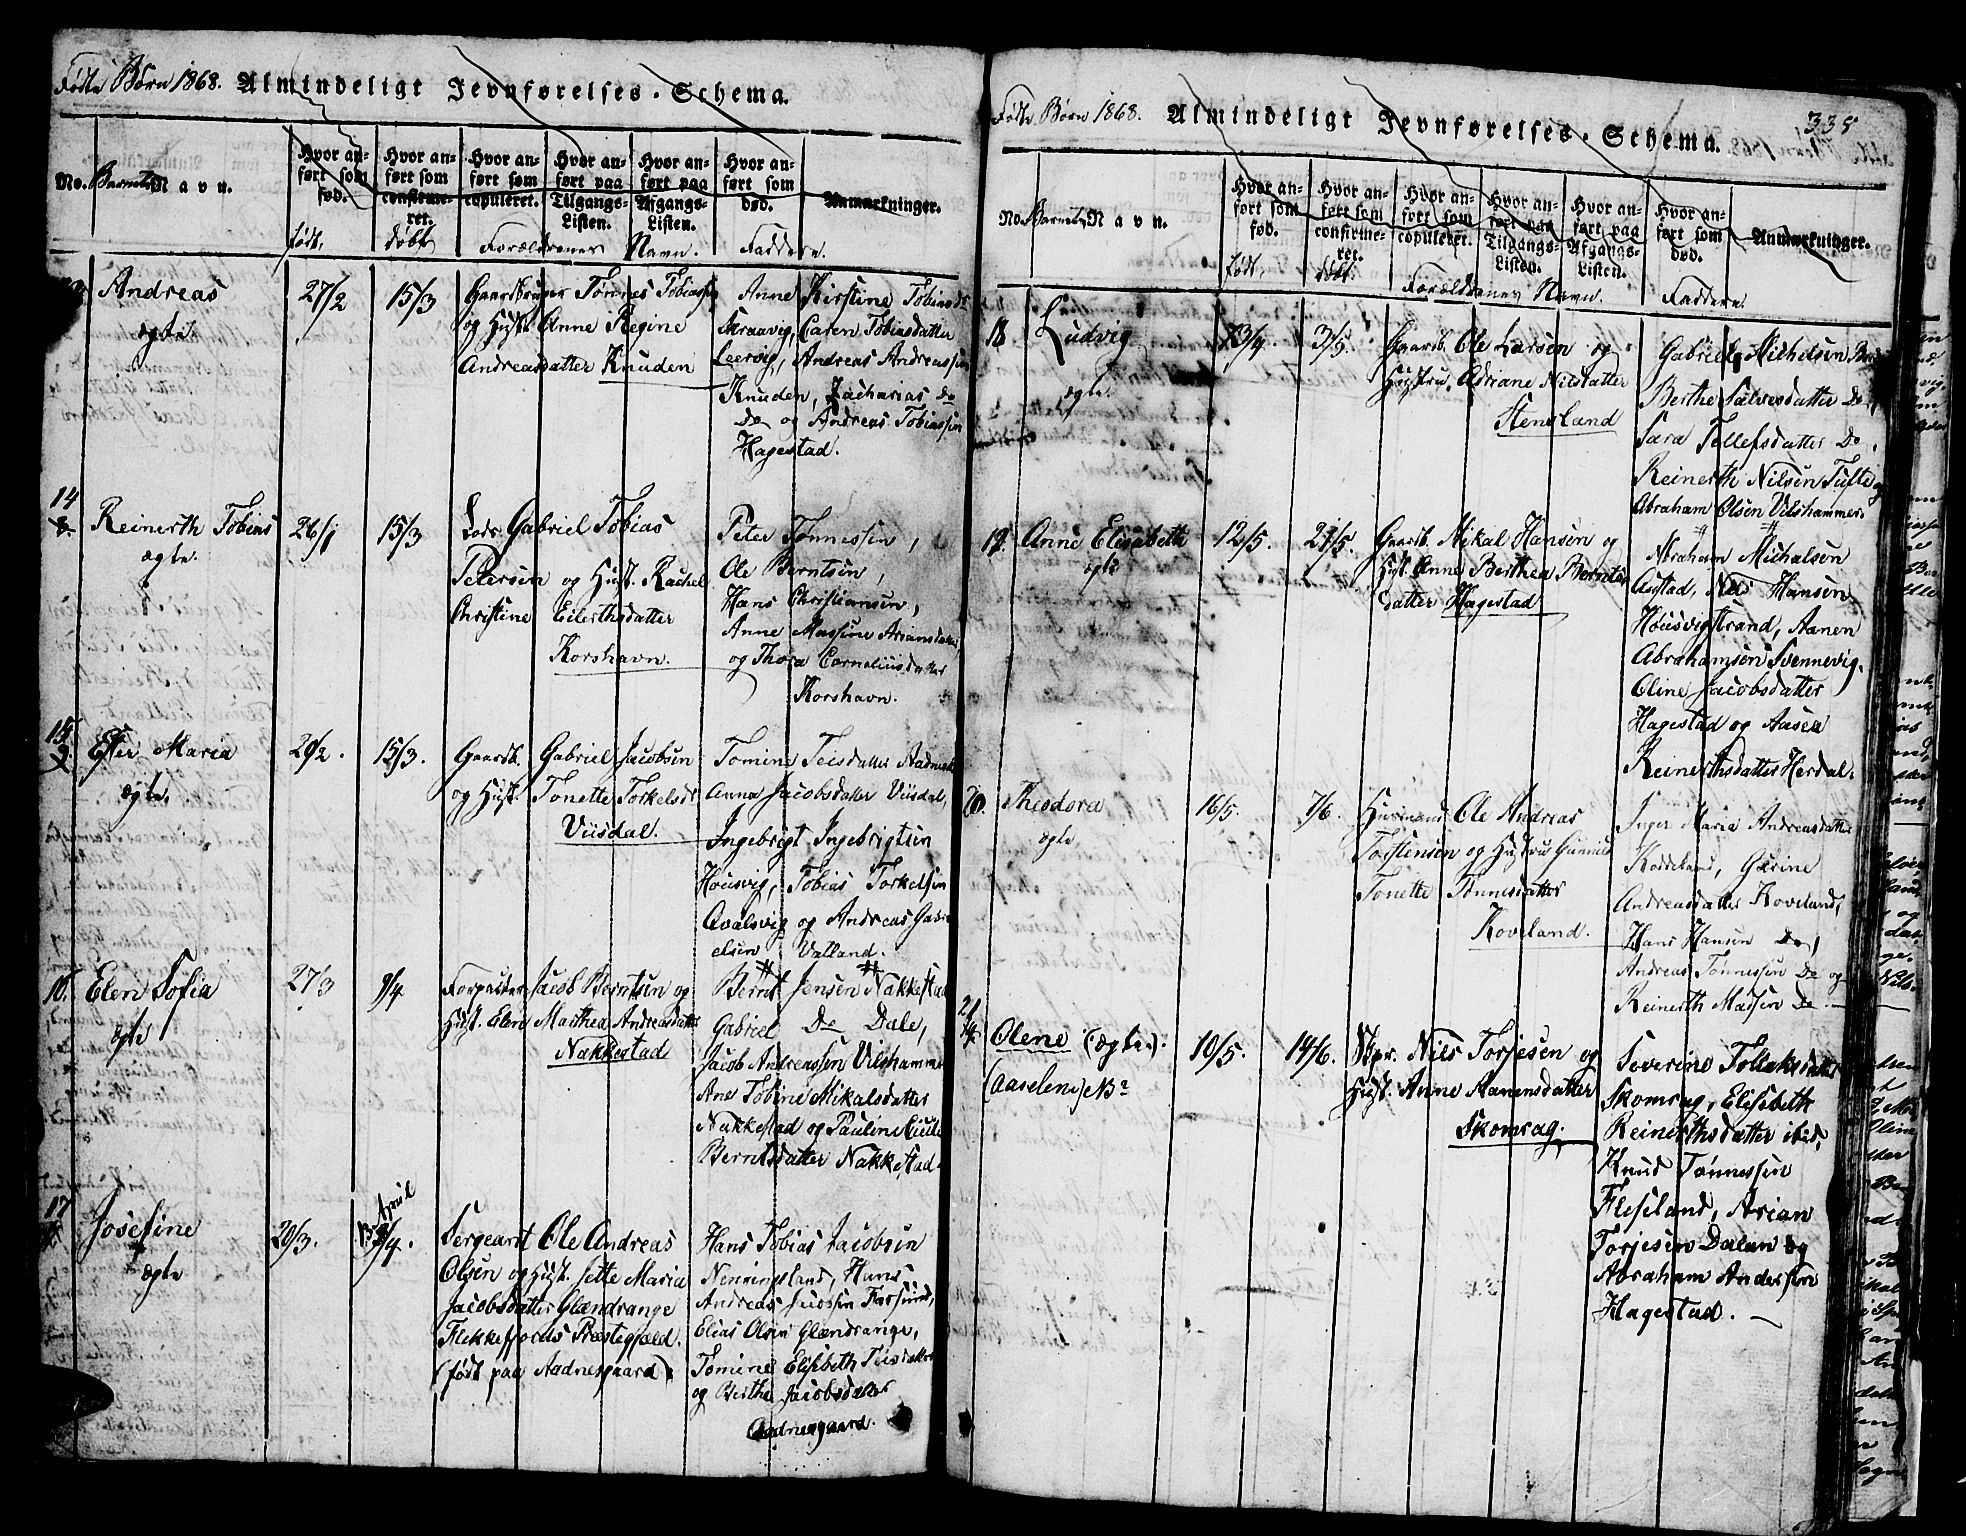 Fødte Børn 1868. Almindeligt Jevnførelses-Schema.
No. Barnets Navn.
Hvor anført som fød. født,
Hvor anført som confirmeret. døbt
Hvor anført som copuleret.
Hvor anført paa Tilgangs-Listen.
Hvor anført paa Afgangs-Listen.
Hvor anført som død.
Anmærkninger.
Forældrenes Navn. Faddere.
Andreas
ægte.
27/2
15/3
Gaardbruger Tønnes Tobiassen
og Hust. Anne Regine
Andreasdatter Knuden
Anne Kirstine Tobiasdr
Skraavig, Caren Tobiasdatter
Leervig, Andreas Andreassen
Knuden, Zacharias Do
Do og Andreas Tobiassen
Hagestad.
14
8.
Reinerth Tobias
ægte.
26/1
15/3
Lods Gabriel Tobias
Petersen og Hust. Rachel
Christine Eilerthsdatter
Korshavn.
Peter Tønnessen,
Ole Berntsen,
Hans Christiansen,
Anne Massine Ariansdatter
og Thora Corneliusdatter
Korshavn.
15
9
Ester Maria
ægte.
15/3.
Gaardb. Gabriel Jacobsen
og Hust. Tonette Torkelsdr
Viisdal.
Tomine Teisdatter
Anna Jacobsdatter Viisdal,
Ingebrigt Ingebrigtsen
Housvig, Tobias Torkelsen
Qvalsvig og Andreas Gabri
elsen Valland.
16.
Elen Sofia
ægte
27/3
9/4
Forpagter Jacob Berntsen og
Hust. Elen Marthea Andreasdatter
Nakkestad
Bernt Jensen Nakkestad
Gabriel Do Dale,
Jacob Andreassen Vilshammer
Ane Tobine Mikalsdatter
Nakkestad og Pauline Cecilie
Berntsdatter Nakkestad.
17
Josefine
ægte
20/3.
13 April
Sergeant Ole Andreas
Olsen og Hust. Jette Maria
Jacobsdatter Glændrange
Flekkefjords Præstegjeld.
(født paa Aadnesgaard)
Hans Tobias Jacobsen
Nenningsland, Hans
Andreas Jacobsen Farsund,
Elias Olsen Glændrange,
Tomine Elisebeth Teisdatter
og Berthe Jacobsdatter
Aadnesgaard.
Fødte Børn 1868. Almindeligt Jevnførelses-Schema.
335
No. Barnets Navn.
Hvor anført som fød. født,
Hvor anført som confirmeret. døbt.
Hvor anført som copuleret.
Hvor anført paa Tilgangs-Listen.
Hvor anført paa Afgangs-Listen.
Hvor anført som død.
Anmærkninger.
Forældrenes Navn. Faddere.
18
Ludvig
ægte.
13/4.
3/5.
Gaardb. Ole Larsen og
Hustru. Adriane Nilsdatter
Stensland
Gabriel Michelsen
Berthe Salvesdatter Do
Sara Tollefsdatter Do.
Reinerth Nilsen Tufte og
Abraham Olsen Vilshammer.
19.
Anne Elisabeth
ægte
12/5.
21/5.
Gaardb. Mikal Hansen og
Hust. Anne Berthea Bernts
datter Hagestad
Abraham Michalsen
Nils Hansen
Housvigstrand, Aanen
Abrahamsen Svennevig.
Oline Jacobsdatter
Hagestad og Aasea
Reinerthsdatter Herdal.
20.
Theodora
ægte
16/5.
7/6.
Huusmand Ole Andreas
Torstensen og Hustru Gunnild
Tonette Tønnesdatter
Koveland.
Inger Maria Andreasdatter
Koddeland, Gurine
Andreasdatter Koveland,
Hans Hansen Do,
Andreas Tønnessen Do og
Reinerth Madsen Do.
21
Olene (ægte).
(Aaselene) NB
10/5.
14/6.
Skpr. Nils Torjesen og
Hust. Anne Aanensdatter
Skomrag.
Severine Tollaksdatter
Skomrag, Elisebeth
Reinerthsdatter ibid,
Knud Tønnessen
Fleseland, Arian
Torjesen Dalan og
Abraham Andersen
Hagestad.